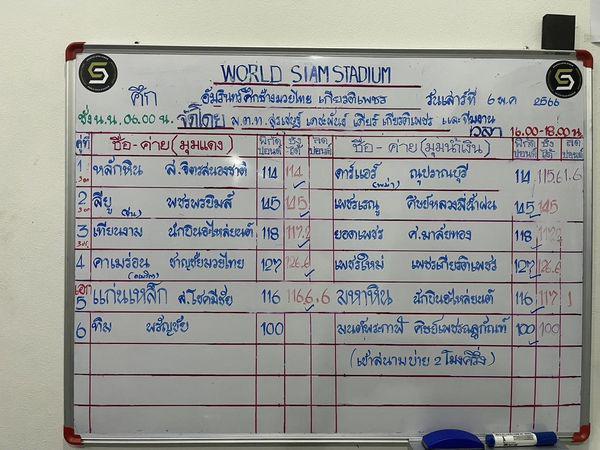 WORLD SIAM STADIUM
ศึก อัมรินทร์ศึกช้างมวยไทย เกียรติเพชร วันเสาร์ที่ 6 พ.ค 2566
ชั่ง น.น. 06.00 น. จัดโดย พ.ต.ท. สุรเชษฐ์ เตชะพันธ์ เสี่ยรี่ เกียรติเพชร และทีมงาน
เวลา 16.00-18.00น.
คู่ที่ ชื่อ-ค่าย (มุมแดง) พิกัด ปอนด์ ชั่ง ได้ ลด ปอนด์ ชื่อ-ค่าย (มุมน้ำเงิน) พิกัด ปอนด์ ชั่ง ได้ ลด ปอนด์
1 หลักหิน ส.จิตรสนองชาติ 114 114 ดาร์แอร์ ณุปราณบุรี 114 115.6 1.6
2 สียู พชรพรยิมส์ 145 145 เพชรเรณู ศิษย์หลวงพี่น้ำฝน 145 145
3 เทียนงาม นักบินอะไหล่ยนต์ 118 117.2 ยอดเพชร ศ.มาลัยทอง 118
4 คาเมร่อน ชาญชัยมวยไทย 127 126.6 เพชรใหม่ เพชรเกียรติเพชร 127 126.6
เอก 5 แก่นเหล็ก ส.โชคมีชัย 116 116.6 .6 มหาหิน นักบินอะไหล่ยนต์ 116 117 1
6 ทิม พรัญชัย 100 มนต์พระกาฬ ศิษย์เพชรณฐกัณฑ์ 100 100
(เข้าสนามบ่าย 2 โมงครึ่ง)